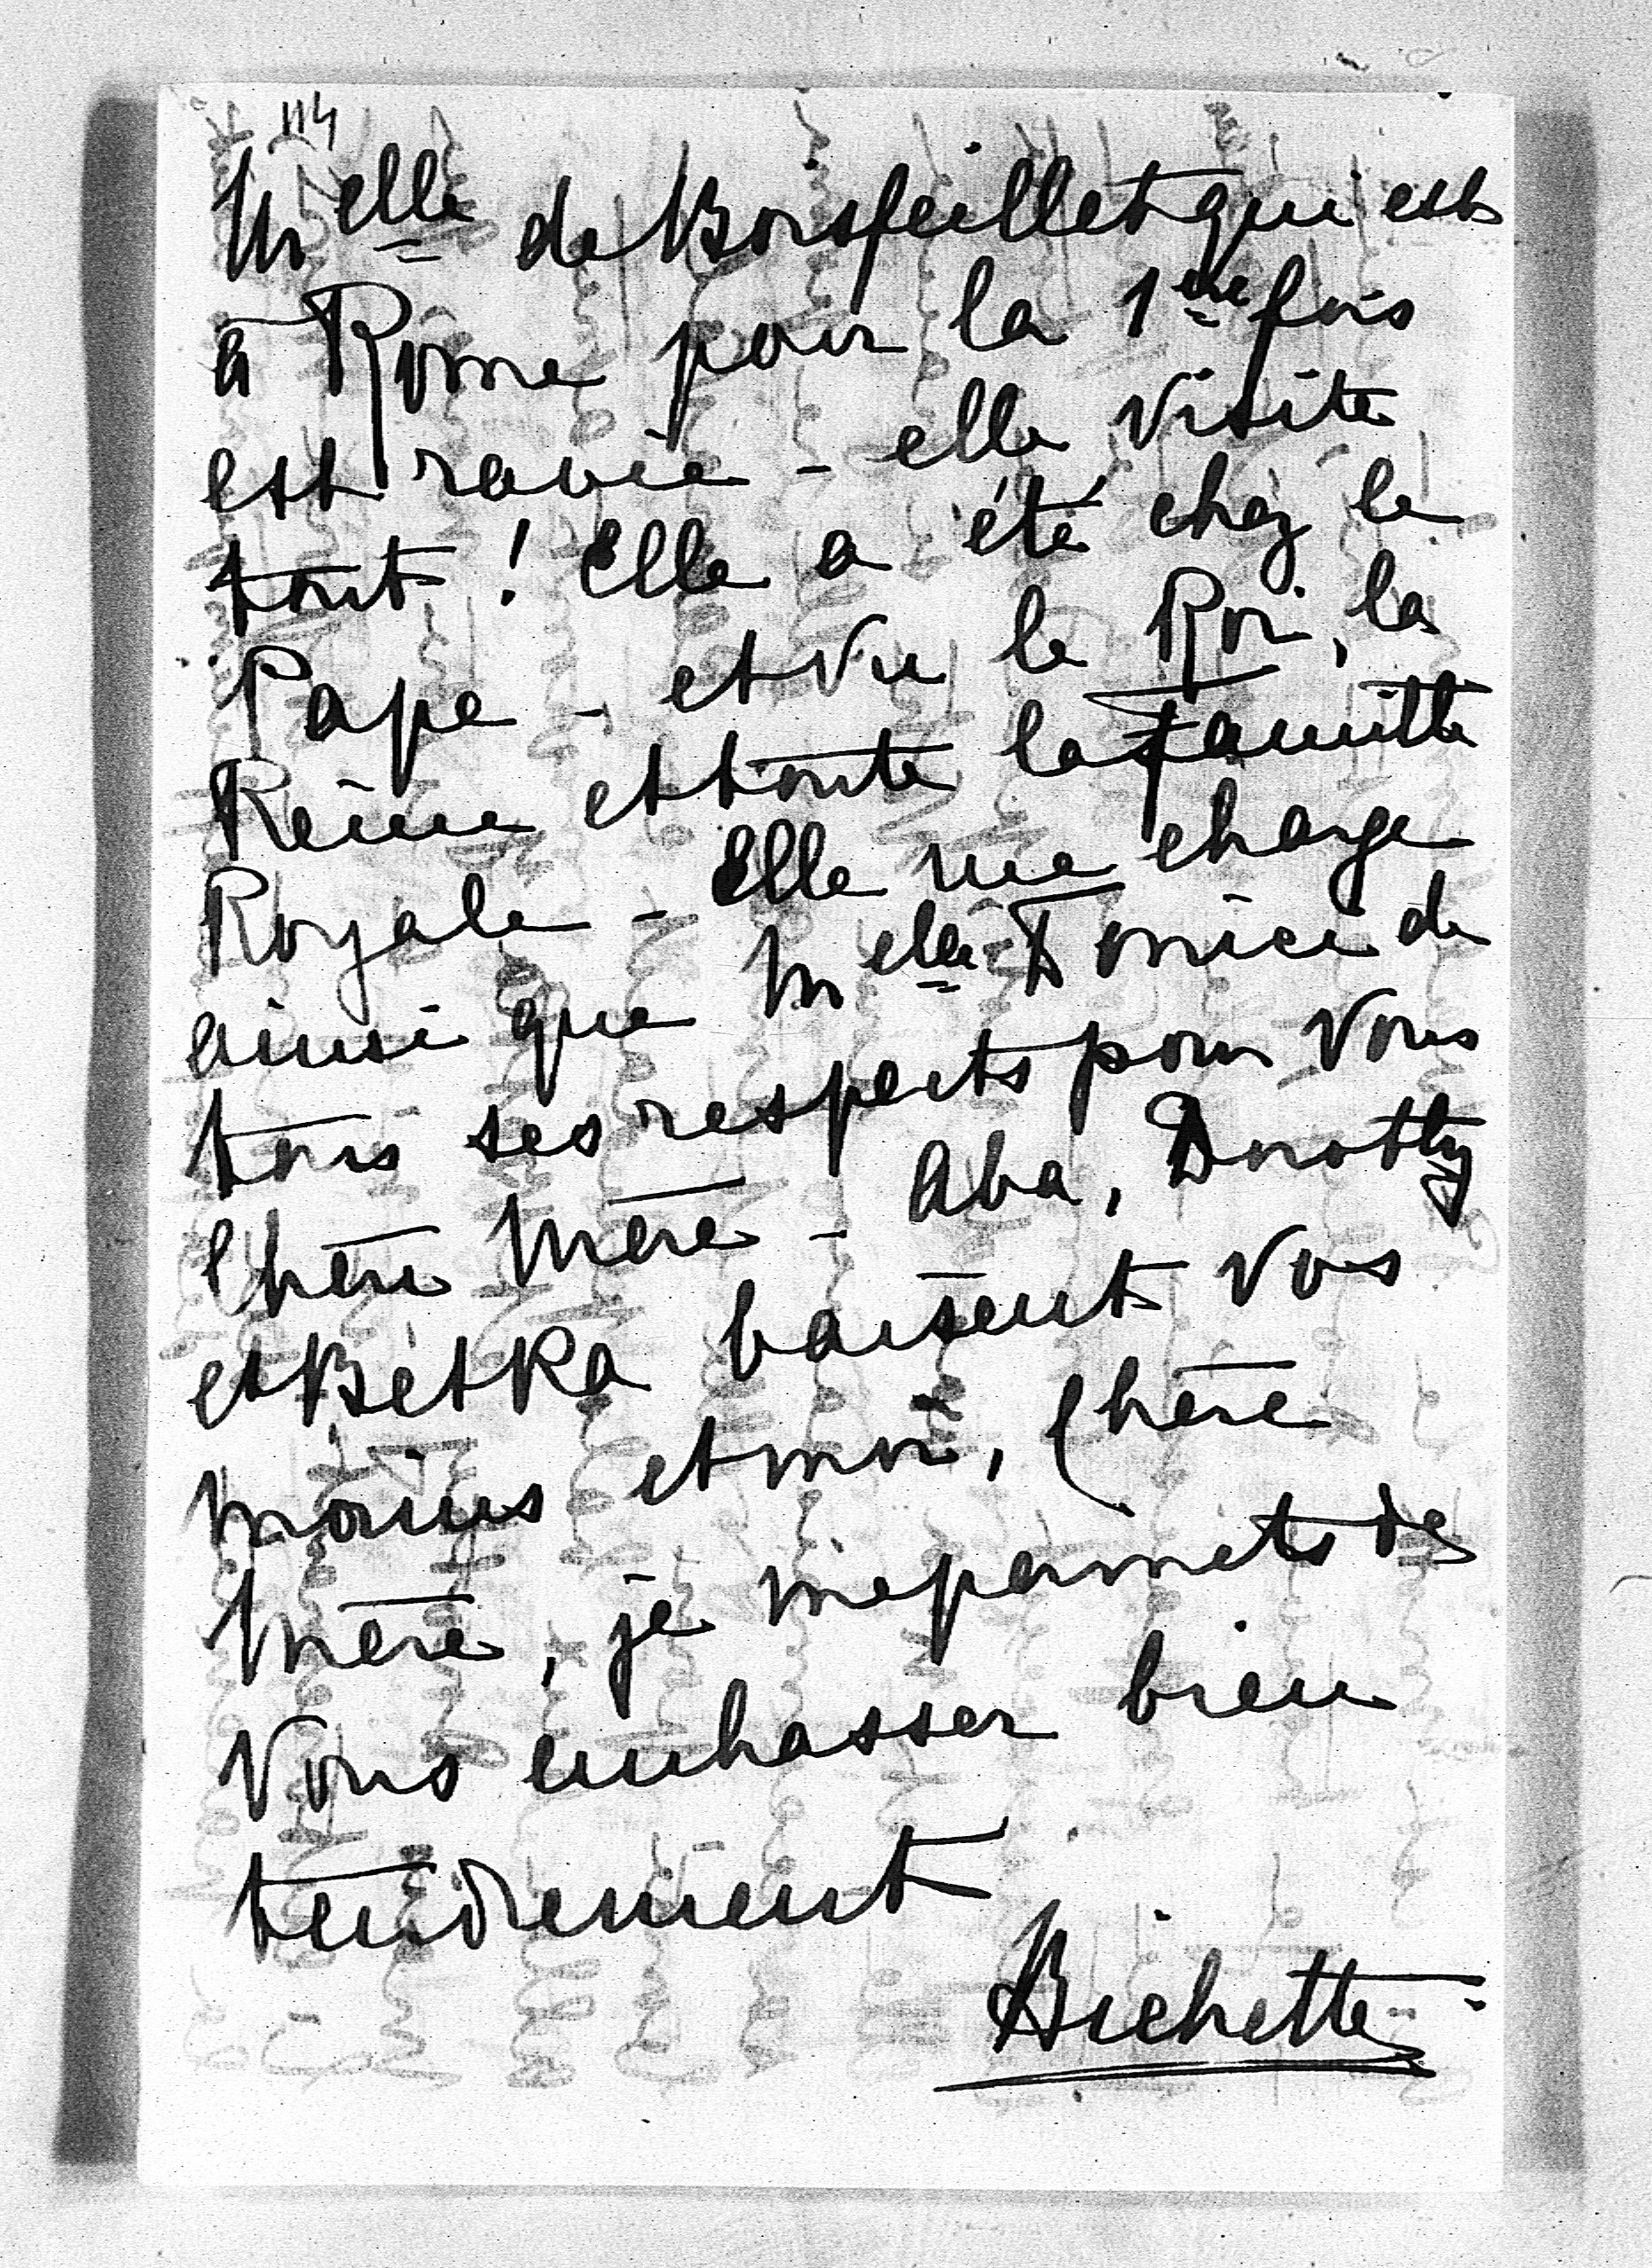 114
Melle de Boisfeillet qui est
à Rome pour la 1ère fois
est ravie - elle visite
tout ! Elle a été chez le
Pape - et vu le Roi, la
Reine et toute la Famille
Royale - Elle me charge
ainsi que Melle Tomice de
tous ses respects pour Vous
Chère Mère - Aba, Dorothy
et Betka baisent Vos
mains et moi, Chère
Mère, je me permets de
Vous embrasser bien
tendrement
Bichette